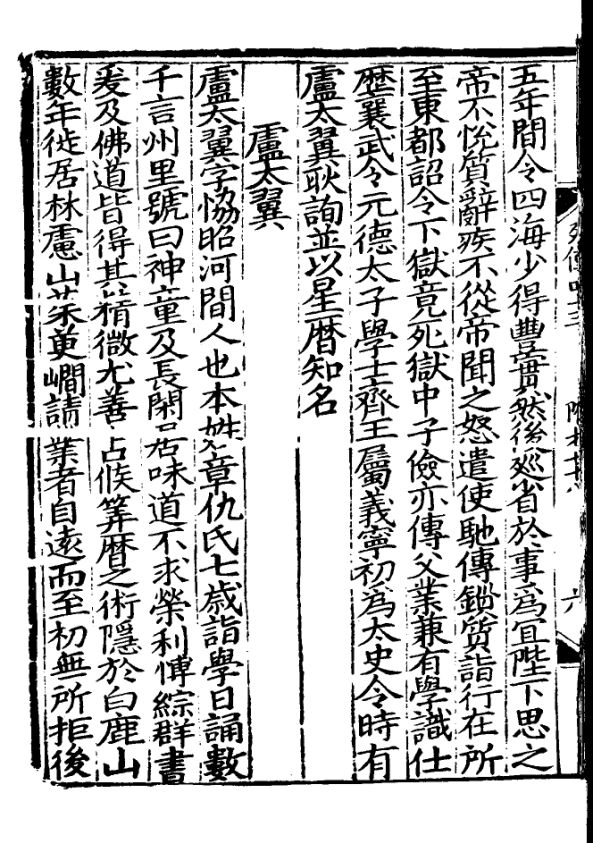 五年間令四海少得豐實然後巡省於事爲宜陛下思之
帝不悅質辭疾不從帝聞之怒遣使馳傳鎖質詣行在所
至東都詔令下獄竟死獄中子儉亦傳父業兼有學識仕
歷襄武令元德太子學士齊王屬義寧初爲太史令時有
盧太翼耿詢並以星曆知名
盧太翼
盧太翼字協昭河間人也本姓章仇氏七歲詣學日誦數
千言州里號曰神童及長閑居味道不求榮利博綜群書
爰及佛道皆得其精微尤善占候筭曆之術隱於白鹿山
數年徙居林慮山茱萸㵎請業者自遠而至初無所拒後